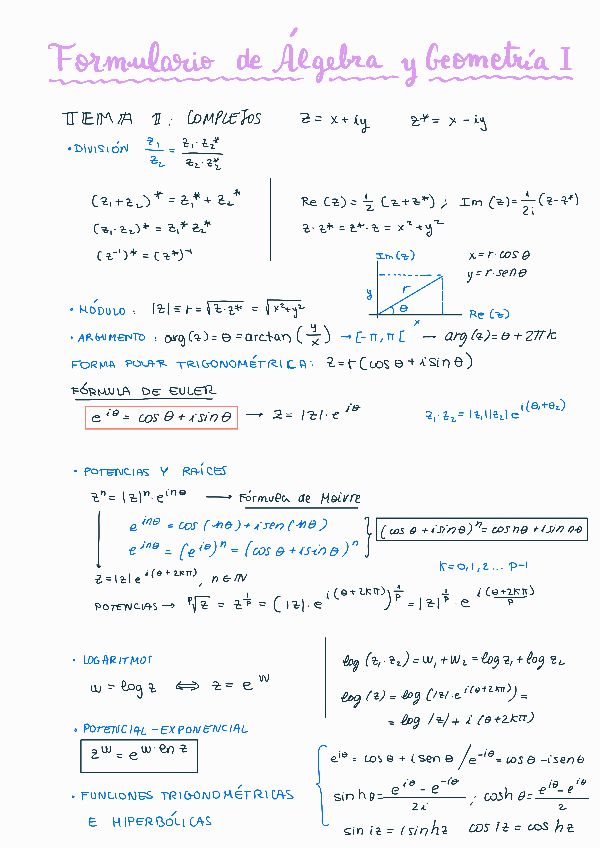 Formulario de Álgebra y Geometría I
TEMA 1: COMPLEJOS z = x + iy z* = x - iy
• DIVISIÓN z₁/z₂ = z₁·z₂*/z₂·z₂*
(z₁+z₂)* = z₁* + z₂*
(z₁·z₂)* = z₁* z₂*
(z⁻¹)* = (z*)⁻¹
Re(z) = 1/2 (z+z*) ; Im(z) = 1/2i (z-z*)
z·z* = z*·z = x² + y²
Im(z)
y r θ
x
Re(z)
x = r·cosθ
y = r·senθ
• MÓDULO: |z| ≡ r = √z·z* = √x²+y²
• ARGUMENTO: arg(z) = θ = arctan(y/x) → [-π, π[ — arg(z) = θ + 2πk
FORMA POLAR TRIGONOMÉTRICA: z = r(cosθ + i sinθ)
FÓRMULA DE EULER
e^iθ = cosθ + i sinθ → z = |z|·e^iθ z₁·z₂ = |z₁||z₂| e^i(θ₁+θ₂)
• POTENCIAS Y RAÍCES
zⁿ = |z|ⁿ·e^inθ → Fórmula de Moivre
e^inθ = cos(nθ) + i sen(nθ)
e^inθ = (e^iθ)ⁿ = (cosθ + i sinθ)ⁿ
(cosθ + i sinθ)ⁿ = cos nθ + i sin nθ
z = |z| e^i(θ+2kπ), n ∈ ℕ
k = 0,1,2... p-1
POTENCIAS → ᵖ√z = z^1/p = (|z|·e^i(θ+2kπ))^1/p = |z|^1/p · e^i(θ+2kπ)/p
• LOGARITMOS
w = log z ⟺ z = e^w
log(z₁·z₂) = w₁ + w₂ = log z₁ + log z₂
log(z) = log(|z|·e^i(θ+2kπ)) =
= log|z| + i(θ+2kπ)
• POTENCIAL-EXPONENCIAL
z^w = e^w·ln z
• FUNCIONES TRIGONOMÉTRICAS
E HIPERBÓLICAS
e^iθ = cosθ + i senθ / e^-iθ = cosθ - i senθ
sinhθ = e^iθ - e^-iθ/2i ; coshθ = e^iθ - e^iθ/2
sin iz = i sinhz cos iz = cos hz